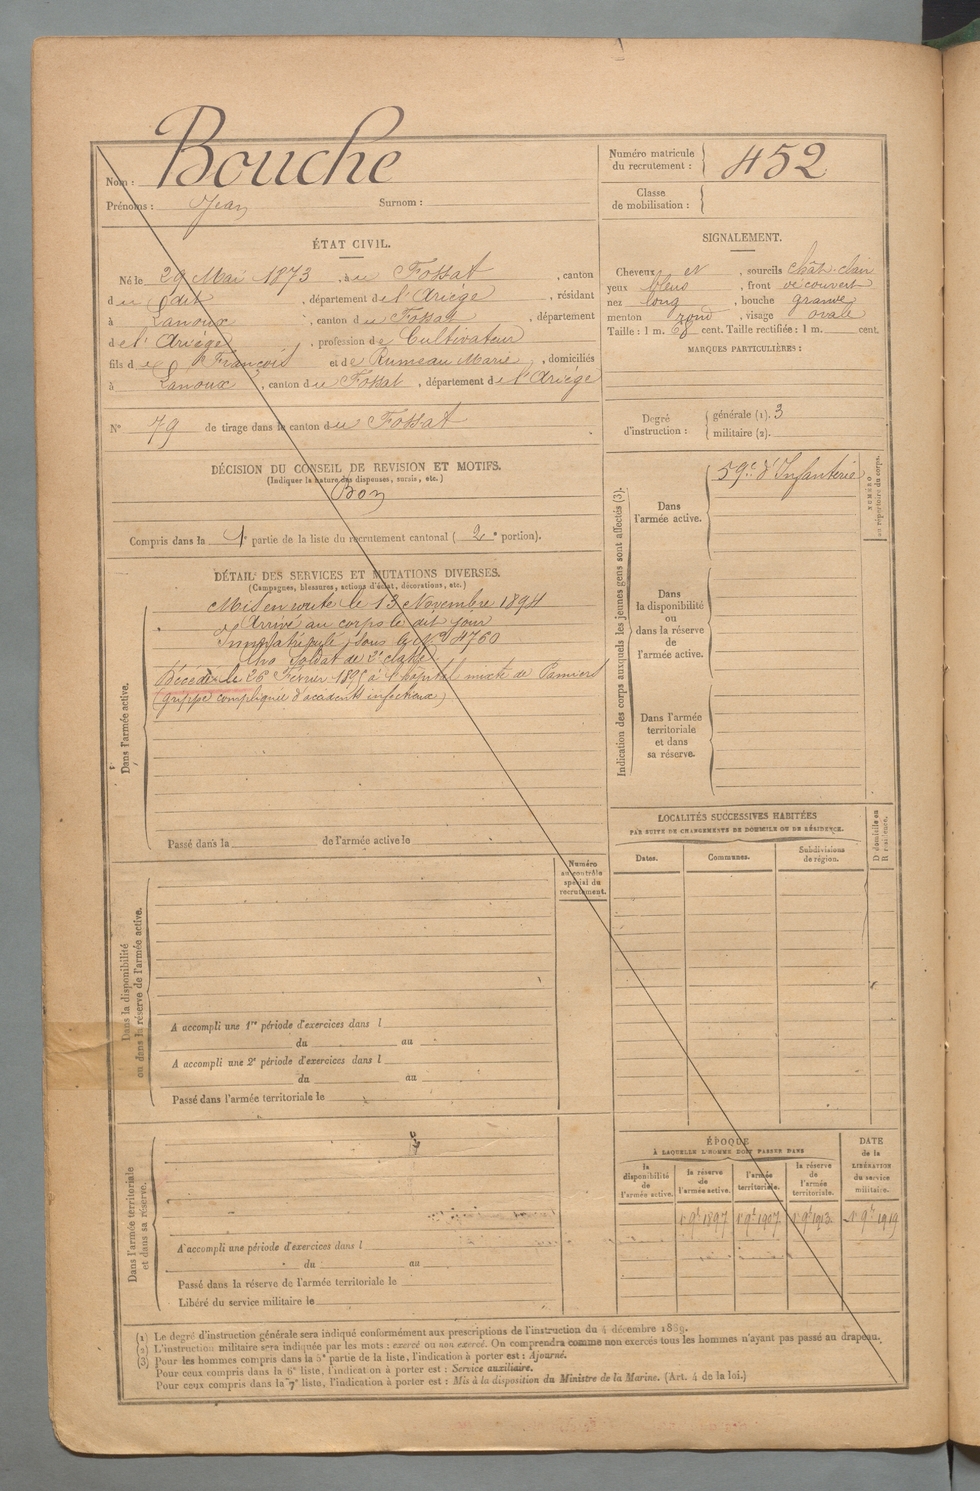 Nom : Bouche
Prénoms : Jean Surnom :
Numéro matricule
du recrutement : 452
Classe
de mobilisation :
ÉTAT CIVIL.
Né le 29 Mai 1873, à u Fossat, canton
d u dit, département de l'Ariège, résidant
à Lanoux, canton du Fossat, département
de l'Ariège, profession de Cultivateur
fils de François et de Rumeau Marie, domiciliés
à Lanoux, canton du Fossat, département de l'Ariège
N° 79 de tirage dans le canton du Fossat
SIGNALEMENT.
Cheveux et, sourcils chât. clair
yeux bleus, front découvert
nez long, bouche grande
menton rond, visage ovale
Taille : 1 m. 68 cent. Taille rectifiée : 1 m. cent.
MARQUES PARTICULIÈRES :
Degré
d'instruction :
générale (1). 3
militaire (2).
DÉCISION DU CONSEIL DE REVISION ET MOTIFS.
(Indiquer la nature des dispenses, sursis, etc.)
Bon
Compris dans la 1e partie de la liste du recrutement cantonal ( 2e portion).
DÉTAIL DES SERVICES ET MUTATIONS DIVERSES.
(Campagnes, blessures, actions d'éclat, décorations, etc.)
Dans l'armée active.
Mis en route le 13 Novembre 1894
Arrivé au corps le dit jour
Immatriculé sous le No 4760
Soldat de 2e classe.
Décédé le 26 Février 1895 à l'hôpital mixte de Pamiers
(grippe compliquée d'accidents infectieux)
Passé dans la de l'armée active le
Indication des corps auxquels les jeunes gens sont affectés (3).
Dans
l'armée active.
59e d'Infanterie
NUMÉRO
au répertoire du corps.
Dans
la disponibilité
ou
dans la réserve
de
l'armée active.
Dans l'armée
territoriale
et dans
sa réserve.
LOCALITÉS SUCCESSIVES HABITÉES
PAR SUITE DE CHANGEMENTS DE DOMICILE OU DE RÉSIDENCE.
Dates.
Communes.
Subdivisions
de région.
D domicile ou
R résidence.
Numéro
au contrôle
spécial du
recrutement.
Dans la disponibilité
ou dans la réserve de l'armée active.
A accompli une 1re période d'exercices dans l
du au
A accompli une 2e période d'exercices dans l
du au
Passé dans l'armée territoriale le
Dans l'armée territoriale
et dans sa réserve.
A accompli une période d'exercices dans l
du au
Passé dans la réserve de l'armée territoriale le
Libéré du service militaire le
ÉPOQUE
À LAQUELLE L'HOMME DOIT PASSER DANS
la
disponibilité
de
l'armée active.
la réserve
de
l'armée active.
l'armée
territoriale.
la réserve
de
l'armée
territoriale.
DATE
de la
LIBÉRATION
du service
militaire.
1 9bre 1897 1 9bre 1907 1 9bre 1913. 1 9bre 1919
(1) Le degré d'instruction générale sera indiqué conformément aux prescriptions de l'instruction du 4 décembre 1889.
(2) L'instruction militaire sera indiquée par les mots : exercé ou non exercé. On comprendra comme non exercés tous les hommes n'ayant pas passé au drapeau.
(3) Pour les hommes compris dans la 5e partie de la liste, l'indication à porter est : Ajourné.
Pour ceux compris dans la 6e liste, l'indication à porter est : Service auxiliaire.
Pour ceux compris dans la 7e liste, l'indication à porter est : Mis à la disposition du Ministre de la Marine. (Art. 4 de la loi.)